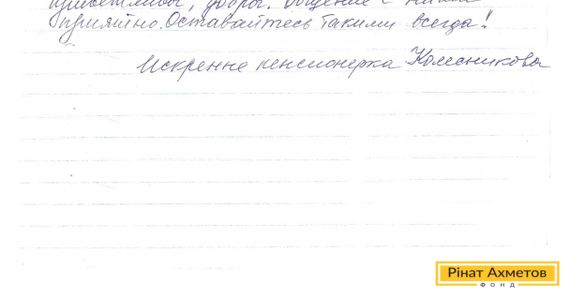 приветливы, добры. Общение с ними
приятно. Оставайтесь такими всегда!
Искренне пенсионерка Колесникова
Рінат Ахметов
ФОНД